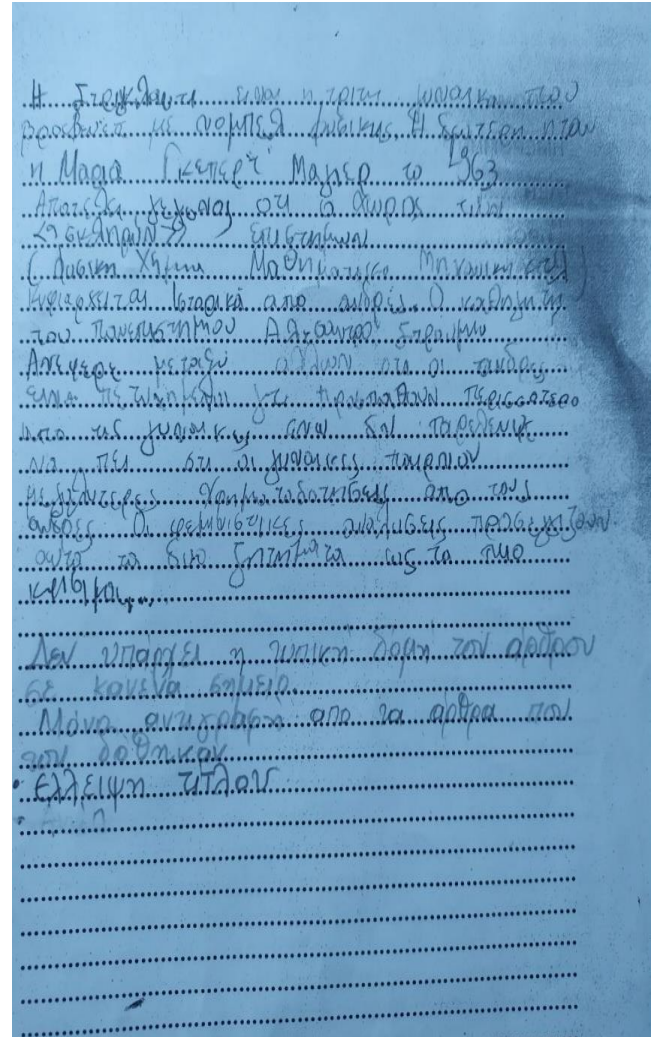 Η Στρικλαντ ειναι η τριτη γυναικα που
βραβευετ με νομπελ φυσικης. Η δευτερη ηταν
η Μαρια Γκεπερτ Μαγιερ το 1963
Αποτελει γεγονος οτι ο χωρος των
<<σκληρων>> επιστημων
(Φυσικη Χημια Μαθηματικα Μηχανικη κτλ)
κυριαρχειται Ιστορικά απο ανδρες. Ο καθηγητη
του Πανεπιστημιου Αλεσαντρο Στρουμια
Ανεφερε μεταξυ αλλων οτι οι ανδρες
ειναι πετυχημενοι γτ προσπαθουν περισσοτερο
απο τις γυναικες, ενω δεν
να πει οτι οι γυναικες παιρνουν
μεγαλυτερες χρηματοδοτησεις απο τους
ανδρες Οι φεμινιστικες αναλυσεις προσεγγιζουν
αυτα τα δυο ζητηματα ως τα πιο
κρισιμα...
Δεν υπάρχει η τυπική δομή του άρθρου
σε κανένα σημείο.
Μόνο αντιγραφή απο τα άρθρα που
του δόθηκαν
• Ελλειψη τίτλου